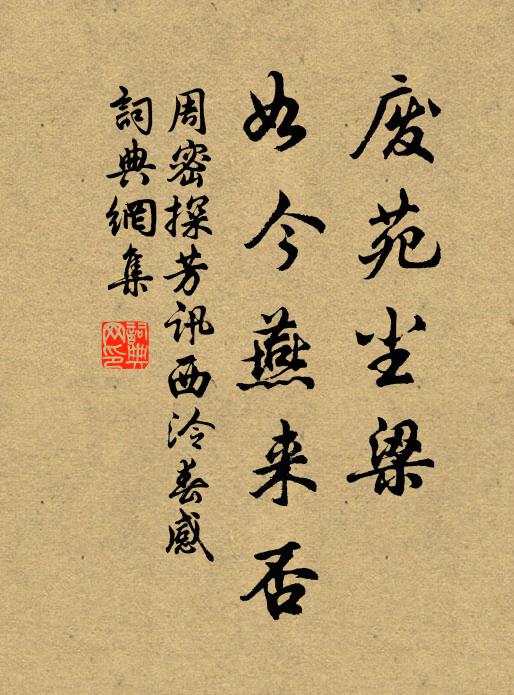 废苑尘梁
如今燕来否
周密探芳讯西泠春感
詞典網集
詞典網印